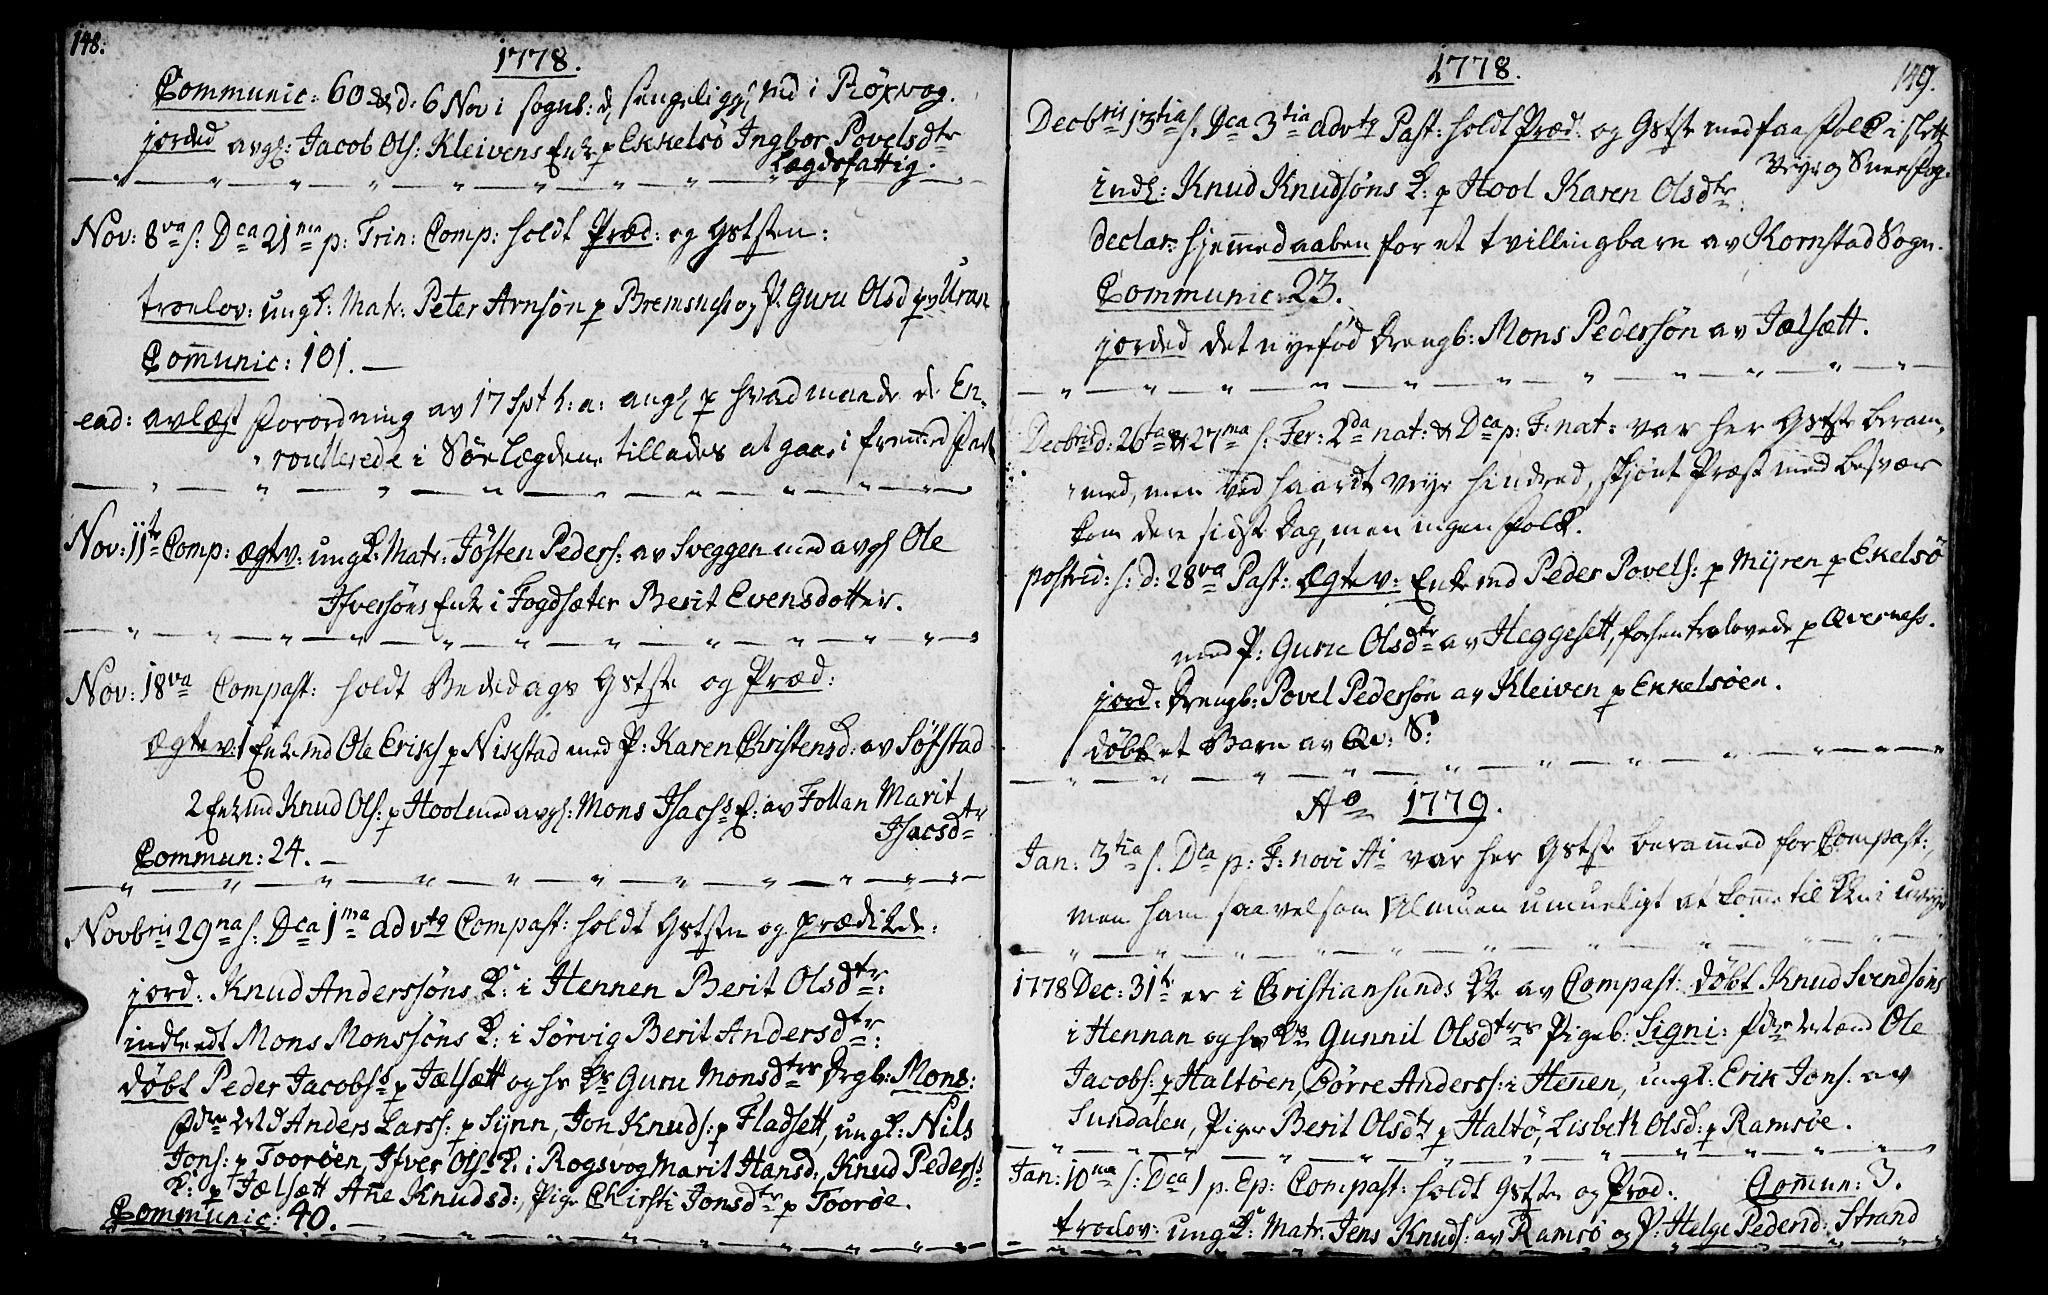 148.
1778.
Communic: 60 & d: 6 Nov i sogneb: d sengeligg ind i Röxvog.
jorded avg: Jacob Ols: Kleivens Enk p Ekkelsö Ingbor Povelsdtr
Lægdsfattig.
Nov: 8va s: Dca 21ma p: Trin: Comp: holdt Præd: og Gststen:
troelov: ungk: Matr: Peter Arnsön p Bremsnes og P. Guru Olsd p Uran
Comunic: 101.
ead: avlæst Forordning av 17 Spt h: a: ang p hvad maade de En-
roullerede i Söe Lægdene tillades at gaae i fremed Fart
Nov: 11te Comp: ægtev: ungk: Matr: Jösten Peders: av Sveggen med avg Ole
Ifversöns Enk i Fogdsæter Berit Evensdotter.
Nov: 18va Compast: holdt Bededags Gstste og Præd:
Ægtev: 1 Enkmd Ole Eriks p Nikstad med P: Karen Christensd: av Söfstad
2 Enkmd Knud Ols: p Hool med avg: Mons Isachs E: av Follan Marit
Isacsdtr
Commun: 24.
Novbris 29na s: Dca 1ma advtq Compast: holdt Gststen og prædikede:
jord: Knud Anderssöns K: i Hennen Berit Olsdtr:
indleedt Mons Monssöns K: i Sörvig Berit Andersdtr:
döbt Peder Jacobs: p Jælsætt og hs Ks Guru Monsdtrs Drgb: Mons:
Fdre Md Anders Larss: p Synn, Jon Knuds: p Fladsett, ungk: Nils
Jons: p Tooröen, Ifver Ols: K: i Rogsvog Marit Hansd:, Knud Peders:
K: p Jælsætt Ane Knudsd:, Pige Chirsti Jonsdtr p Tooröe.
Communic: 40.
149.
1778.
Decbris 13tia s: Dca 3tia advtq Past: holdt Præd: og Gstste med faa Folk i slett
Veyr og Sneefog.
indl: Knud Knudsöns K: p Hool Karen Olsdtr.
declar: hjemedaaben for et tvillingbarn av Kornstad Sogn.
Communic: 23.
jorded det nyefød Drengb: Mons Pedersön av Jælsætt.
Decbris d: 26ta & 27ma s: Fer: 2da nat: & Dca p: F: nat: var her Gstste beram-
med, men ved haardt Veyr hindred, skjönt Præst med besvær
kom dere sidste Dag, men ingen Folk.
postrid: s: d: 28va Past: ægtev: Enkemd Peder Povels: p Myren p Ekelsö
med P: Guru Olsdtr av Heggesett, forhen trolovede p Qverness.
jord: Drengb: Povel Pedersön av Kleiven p Enkelsöen.
döbt et Barn av Qv: S:
Ao 1779.
Jan: 3tia s: Dca p: F: novi Ai var her Gstste beramed for Compast:,
men ham saavelsom Almuen umueligt at kome til Kk i uveyr
1778 Dec: 31te er i Christiansunds Kk av Compast: döbt Knud Svendsöns
i Hennan og hs Ks Gunnil Olsdtrs Pigeb: Signi: Fdre Mænd Ole
Jacobs: p Haltöen, Börre Anderss: i Henen, ungk: Erik Jons: av
Sundalen, Piger Berit Olsdtr p Haltö, Lisbeth Olsd: p Ramsöe.
Jan: 10ma s: Dca 1 p. Ep: Compast: holdt Gstste og Præd: Comun: 3.
troelov: ungk: Matr: Jens Knuds: av Ramsö og P: Helge Pedersd: Strand